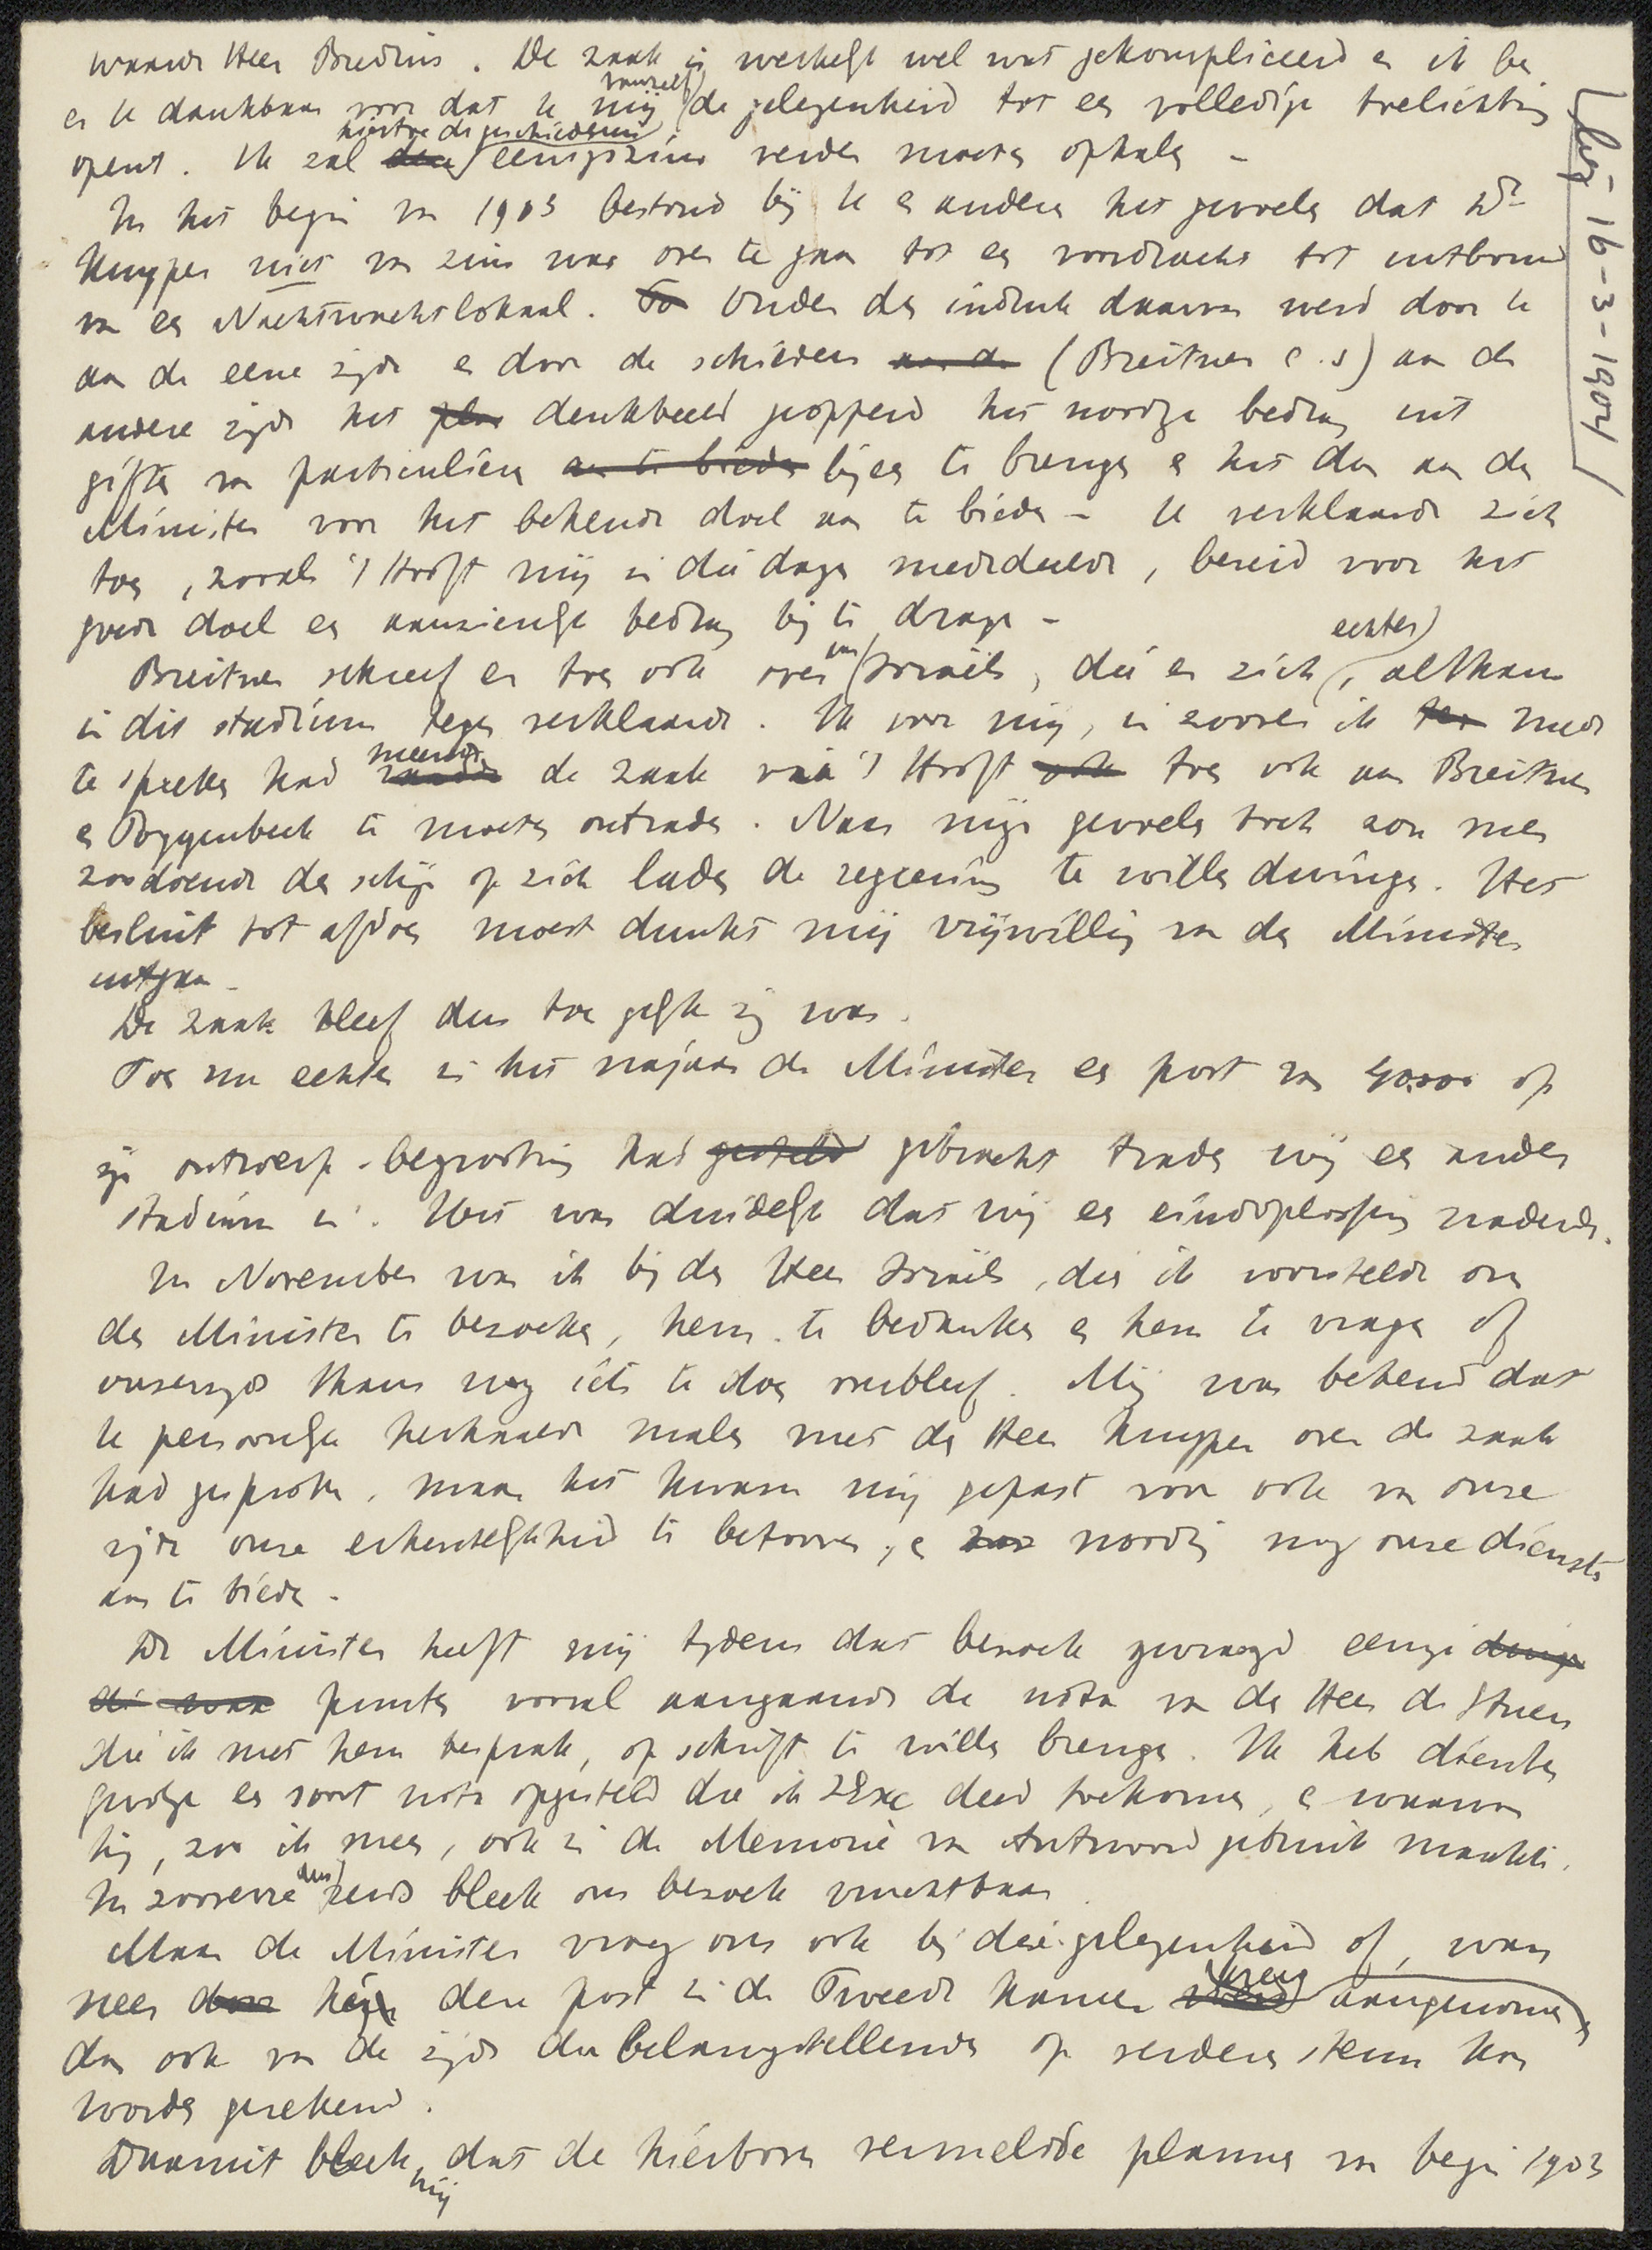 Waarde Heer Bredius. De zaak is werkelijk wel wat gekompliceerd en ik ben
er U dankbaar voor dat U mij vanzelf de gelegenheid tot een volledige toelichting
opent. Ik zal deze hiertoe de geschiedenis eenigszins verder moeten ophalen –
In het begin van 1903 bestond bij U en anderen het gevoelen dat Dr
Kuyper niet van zins was over te gaan tot een voordracht tot uitbouw
van een Nachtwachtlokaal. To Onder den indruk daarvan werd door U
aan de eene zijde en door de schilders aan de (Breitner c.s) aan de
andere zijde het plan denkbeeld geopperd het noodige bedrag uit
giften van particulieren aan te bieden bijeen te brengen en het dan aan den
Minister voor het bekende doel aan te bieden – U verklaarde zich
toen, zooals 't Hooft mij in die dagen mededeelde, bereid voor het
goede doel een aanzienlijk bedrag bij te dragen –
Breitner schreef er toen ook over aan Israëls, die er zich echter, althans
in dit stadium tegen verklaarde. Ik voor mij, in zooverre ik mede
te spreken had meende de zaak via 't Hooft ook toen ook aan Breitner
en Poggenbeek te moeten ontraden. Naar mijn gevoelen toch zou men
zoodoende den schijn op zich laden de regeering te willen dwingen. Het
besluit tot afdoen moest dunkt mij vrijwillig van den Minister
uitgaan –
De zaak bleef dus toen gelijk zij was.
Toen nu echter in het najaar de Minister een post van 40.000 op
zijn ontwerp-begrooting had gesteld gebracht traden wij een ander
stadium in. Het was duidelijk dat wij een eindoplossing naderden.
In November was ik bij den Heer Israëls, dien ik voorstelde om
den Minister te bezoeken, hem te bedanken en hem te vragen of
onzerzijds thans nog iets te doen overbleef. Mij was bekend dat
U persoonlijk herhaalde malen met den Heer Kuyper over de zaak
had gesproken, maar het kwam mij gepast voor ook van onze
zijde onze erkentelijkheid te betoonen, en zoo noodig nog onze diensten
aan te bieden –
De Minister heeft mij tijdens dat bezoek gevraagd eenige dingen
die punten vooral aangaande de nota van den Heer de Stuers
die ik met hem besprak, op schrift te willen brengen. Ik heb dienten
gevolge een soort nota opgesteld die ik Z.Exc deed toekomen, en waarvan
hij, zoo ik meen, ook in de Memorie van Antwoord gebruik maakte.
In zooverre dus reeds bleek ons bezoek vruchtbaar
Maar de Minister vroeg ons ook bij die gelegenheid of, wan
neer deze hij deze post in de Tweede Kamer kreeg aangenomen,
dan ook van de zijde der belangstellenden op verderen steun kon
worden gerekend.
Daaruit bleek mij dat de hierboven vermelde plannen van begin 1903
16-3-1904